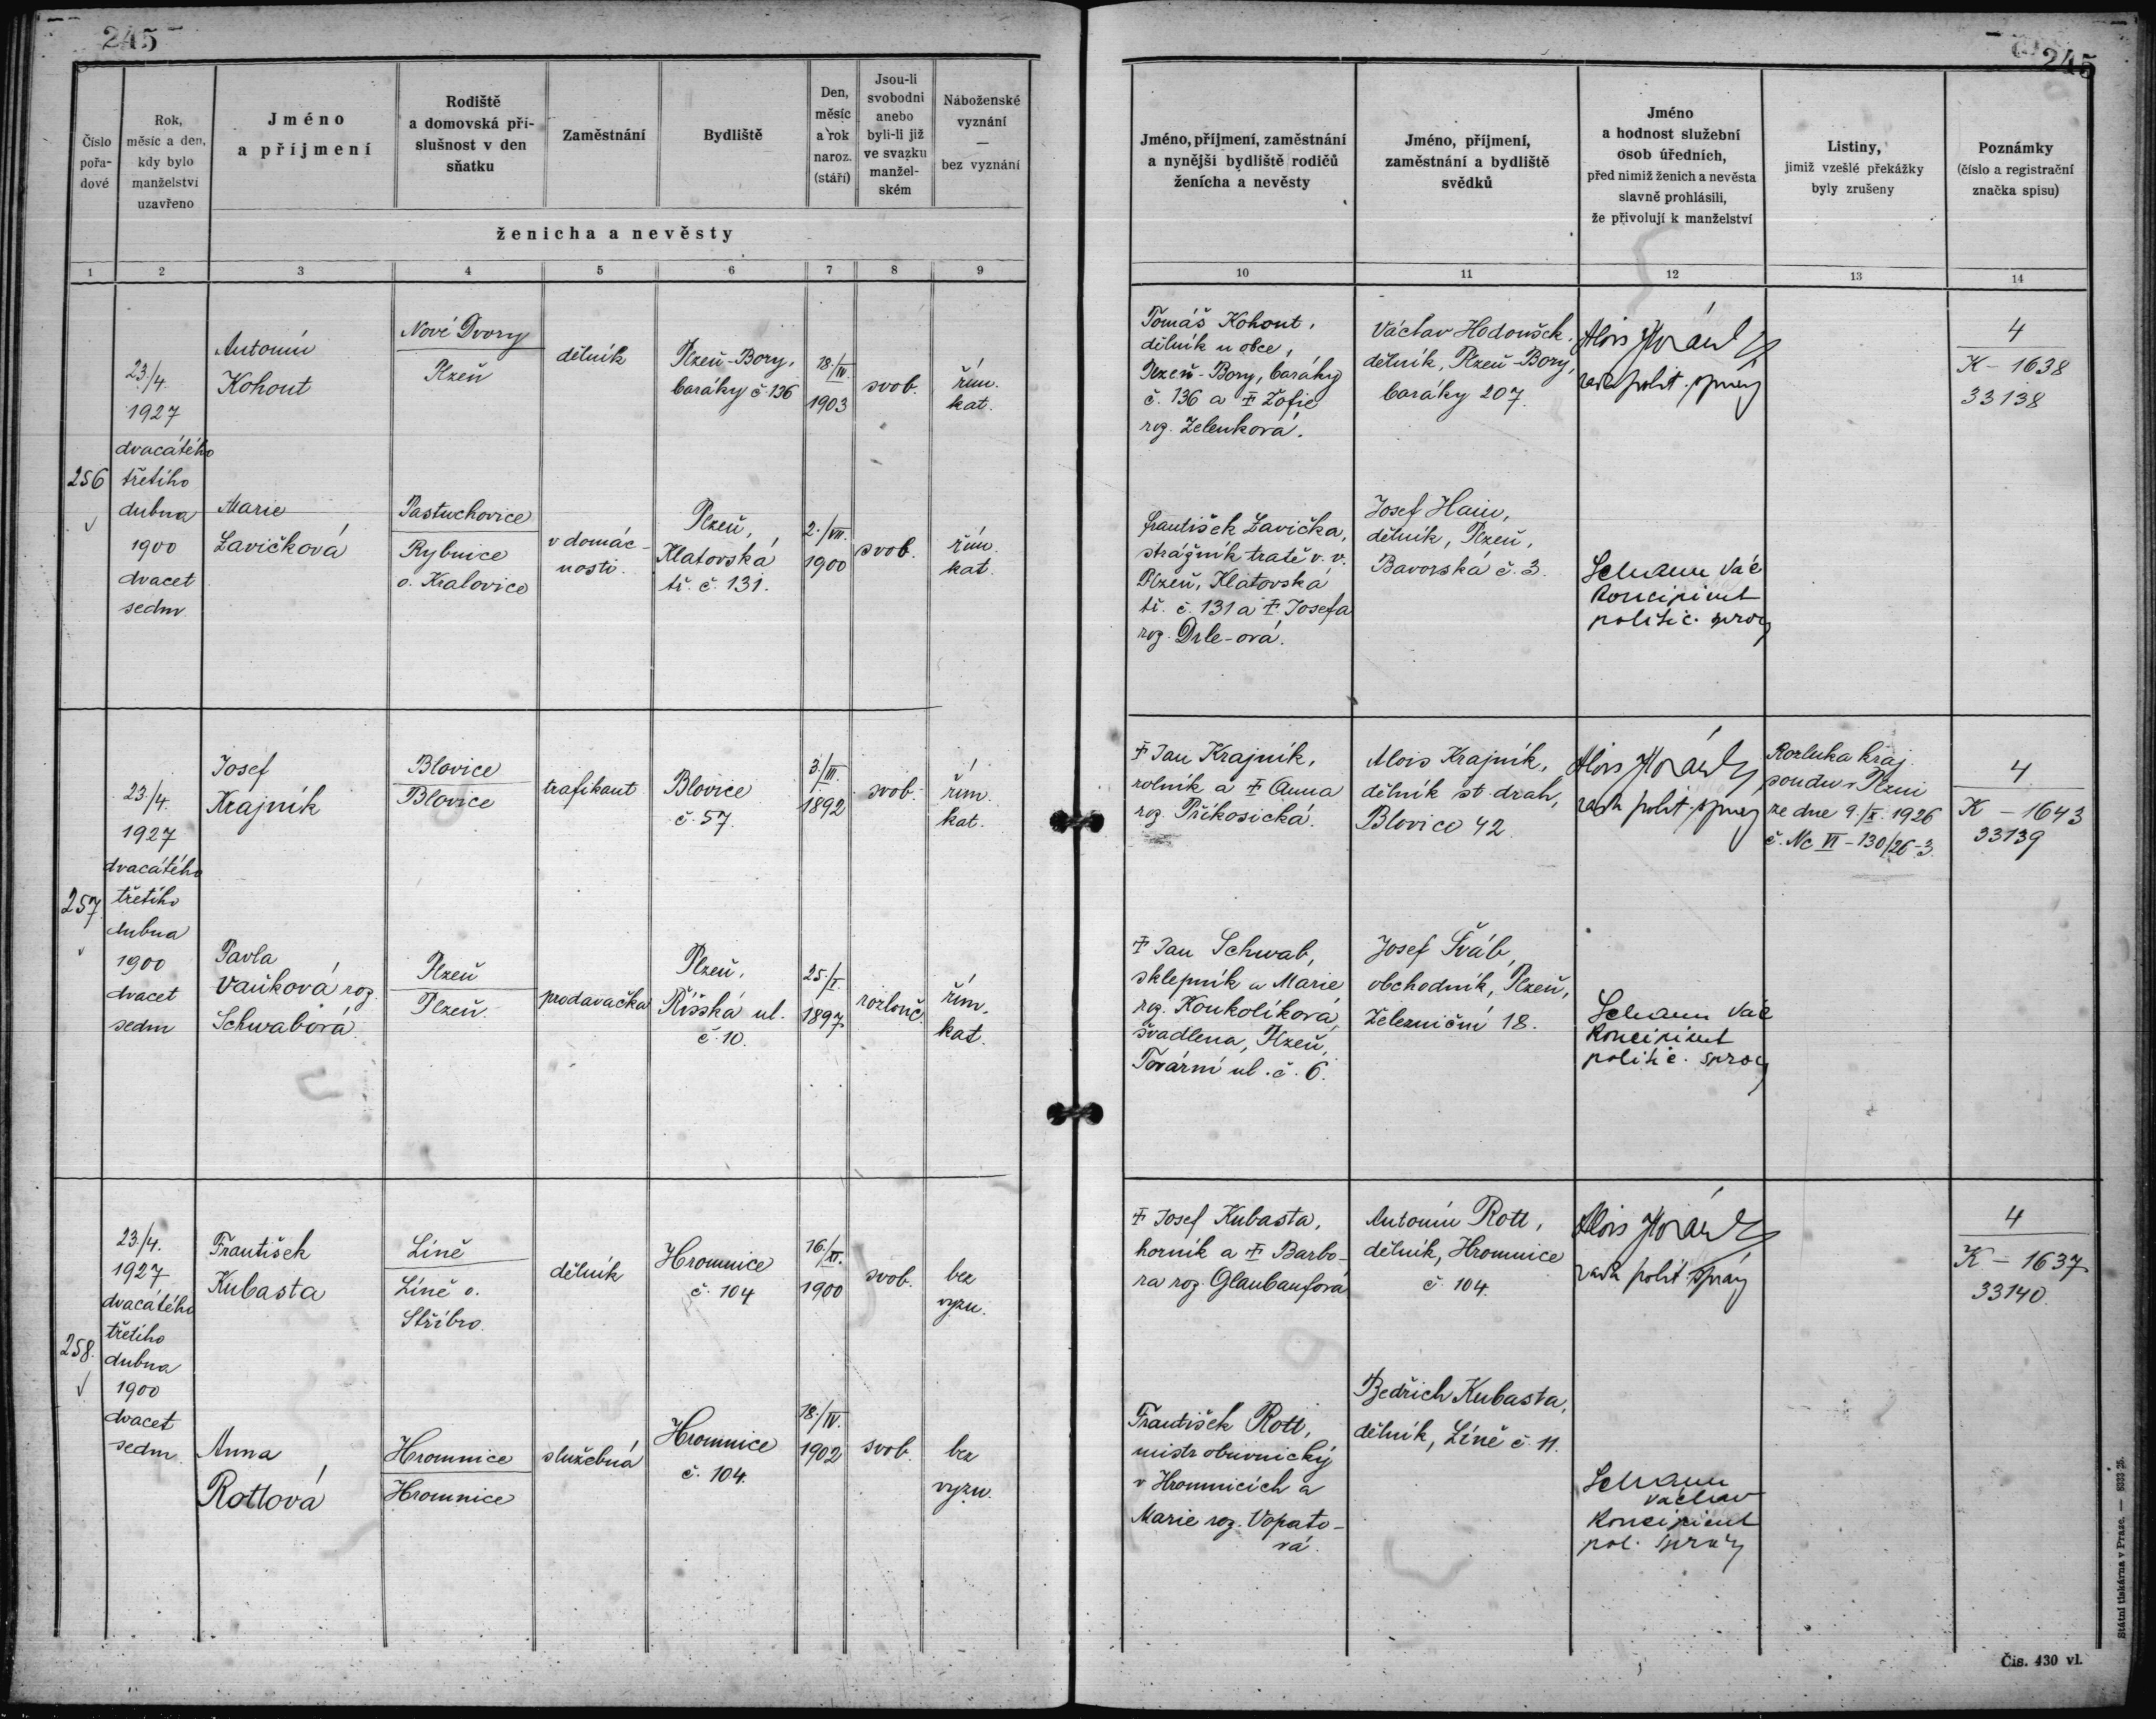 245
245
Číslo pořadové
Rok, měsíc a den, kdy bylo manželství uzavřeno
Jméno a příjmení
Rodiště a domovská příslušnost v den sňatku
Zaměstnání
Bydliště
Den, měsíc a rok naroz. (stáří)
Jsou-li svobodni anebo byli-li již ve svazku manželském
Náboženské vyznání — bez vyznání
ženicha a nevěsty
Jméno, příjmení, zaměstnání a nynější bydliště rodičů ženicha a nevěsty
Jméno, příjmení, zaměstnání a bydliště svědků
Jméno a hodnost služební osob úředních, před nimiž ženich a nevěsta slavně prohlásili, že přivolují k manželství
Listiny, jimiž vzešlé překážky byly zrušeny
Poznámky (číslo a registrační značka spisu)
1 2 3 4 5 6 7 8 9 10 11 12 13 14
256
23./4.
1927
dvacátého
třetího
dubna
1900
dvacet
sedm
Antonín
Kohout
Nové Dvory
Plzeň
dělník
Plzeň-Bory,
baráky č. 136
18./IV.
1903
svob.
řím.
kat.
Tomáš Kohout,
dělník u obce,
Plzeň-Bory, baráky
č. 136 a Ɨ Žofie
roz. Zelenková.
Václav Hodoušek,
dělník, Plzeň-Bory,
baráky 207.
Alois
rada polit. správy
4
K - 1638
33138
Marie
Lavičková
Pastuchovice
Rybnice
o. Kralovice
v domác-
nosti.
Plzeň,
Klatovská
tř. č. 131.
2./VII.
1900
svob.
řím.
kat.
František Lavička,
strážník tratě v. v.
Plzeň, Klatovská
tř. č. 131 a Ɨ Josefa
roz. Drle-ová.
Josef Hain,
dělník, Plzeň,
Bavorská č. 3.
Schann Vác
koncipient
politic. správy
257
23./4.
1927
dvacátého
třetího
dubna
1900
dvacet
sedm
Josef
Krajník
Blovice
Blovice
trafikant
Blovice
č. 57.
3./III.
1892
svob.
řím.
kat.
Ɨ Jan Krajník,
rolník a Ɨ Anna
roz. Příkosická.
Alois Krajník,
dělník st. drah,
Blovice 42
Alois
rada polit. správy
Rozluka kraj.
soudu v Plzni
ze dne 9./X. 1926
č. Nc VI - 130/26-3.
4
K - 1643
33139
Pavla
Vaňková roz.
Schwabová.
Plzeň
Plzeň.
prodavačka
Plzeň,
Říšská ul.
č. 10.
25./I.
1897
rozlouč.
řím.
kat.
Ɨ Jan Schwab,
sklepník a Marie
roz. Koukolíková,
švadlena, Plzeň,
Tovární ul. č. 6.
Josef Šváb,
obchodník, Plzeň,
Železniční 18.
Schann Vác
koncipient
politic. správy
258.
23./4.
1927
dvacátého
třetího
dubna
1900
dvacet
sedm.
František
Kubasta
Líně
Líně o.
Stříbro.
dělník
Hromnice
č. 104
16./XI.
1900
svob.
bez
vyzn.
Ɨ Josef Kubasta,
horník a Ɨ Barbo-
ra roz. Glaubaufová
Antonín Rott,
dělník, Hromnice
č. 104.
Alois
rada polit. správy
4
K - 1637
33140.
Anna
Rottová
Hromnice
Hromnice
služebná
Hromnice
č. 104.
18./IV.
1902
svob.
bez
vyzn.
František Rott,
mistr obuvnický
v Hromnicích a
Marie roz. Vopato-
vá.
Bedřich Kubasta,
dělník, Líně č. 11.
Schann
Václav
koncipient
pol. správy
Státní tiskárna v Praze. — 8333 26.
Čis. 430 vl.